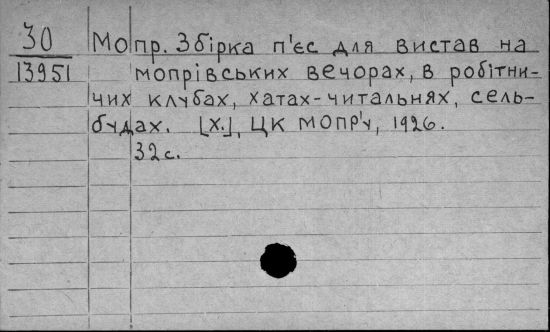 30 Мопр. Збірка п'єс для вистав на
13951 мопрівських вечорах, в робітни-
чих клубах, хатах-читальнях, сель-
будах. [Х.], ЦК МОПР'у, 1926.
32 с.